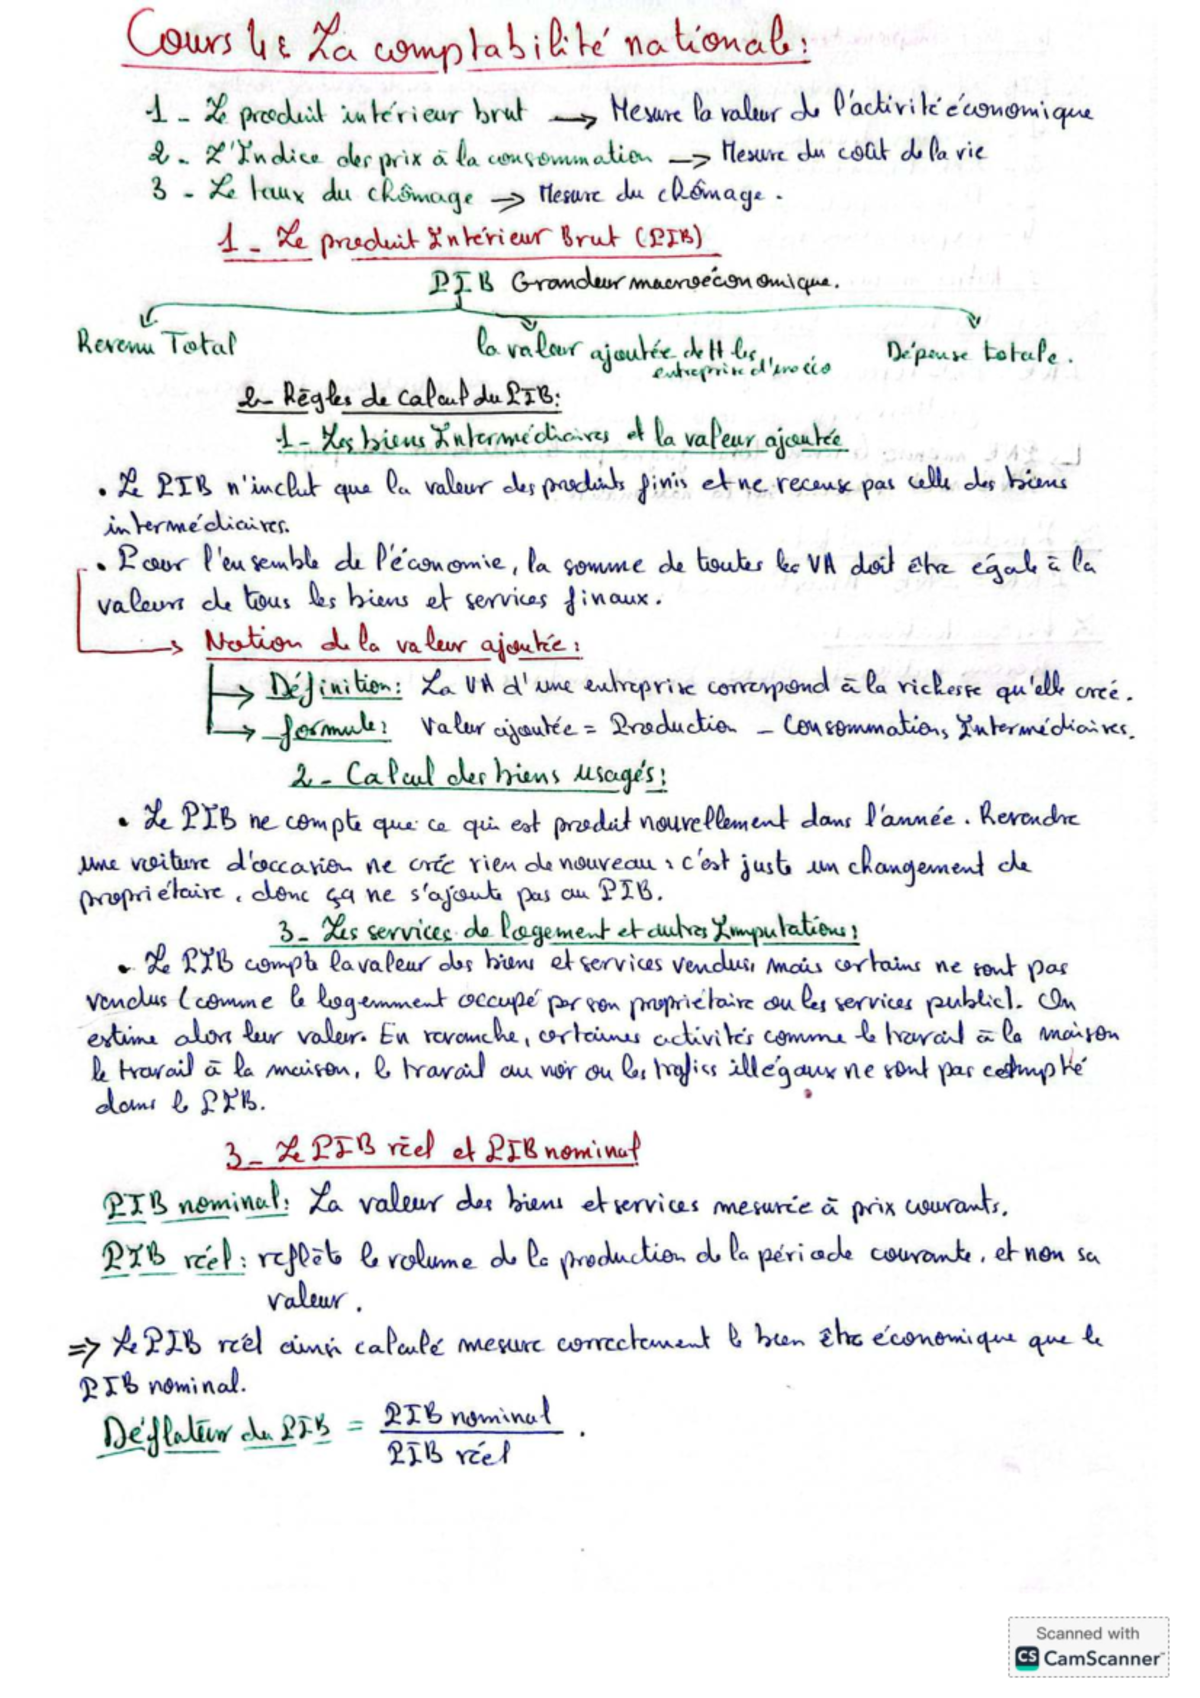 Cours 4 : La comptabilité nationale :
1 - Le produit intérieur brut → Mesure la valeur de l'activité économique
2 - L'Indice des prix à la consommation → Mesure du coût de la vie
3 - Le taux du chômage → Mesure du chômage.
1 - Le produit Intérieur Brut (PIB)
PIB Grandeur macroéconomique.
Revenu Total
la valeur ajoutée de tt les
entreprise d'une éco
Dépense totale.
2- Règles de calcul du PIB :
1 - Les biens Intermédiaires et la valeur ajoutée
• Le PIB n'inclut que la valeur des produits finis et ne recense pas celle des biens
intermédiaires.
• Pour l'ensemble de l'économie, la somme de toutes les VA doit être égale à la
valeurs de tous les biens et services finaux.
→ Notion de la valeur ajoutée :
→ Définition : La VA d'une entreprise correspond à la richesse qu'elle creé.
→ formule : Valeur ajoutée = Production - Consommations Intermédiaires.
2 - Calcul des biens usagés :
• Le PIB ne compte que ce qui est produit nouvellement dans l'année. Revendre
une voiture d'occasion ne crée rien de nouveau : c'est juste un changement de
propriétaire, donc ça ne s'ajoute pas au PIB.
3 - Les services de logement et autres Imputations :
• Le PIB compte la valeur des biens et services vendus, mais certains ne sont pas
vendus (comme le logemment occupé par son propriétaire ou les services public). On
estime alors leur valeur. En revanche, certaines activités comme le travail à la maison
le travail à la maison, le travail au noir ou les trafics illégaux ne sont pas compté
dans le PIB.
3 - Le PIB réel et PIB nominal
PIB nominal : La valeur des biens et services mesurée à prix courants.
PIB réel : reflète le volume de la production de la période courante, et non sa
valeur.
⇒ Le PIB réel ainsi calculé mesure correctement le bien être économique que le
PIB nominal.
Déflateur du PIB = PIB nominal
PIB réel .
Scanned with
CS CamScanner